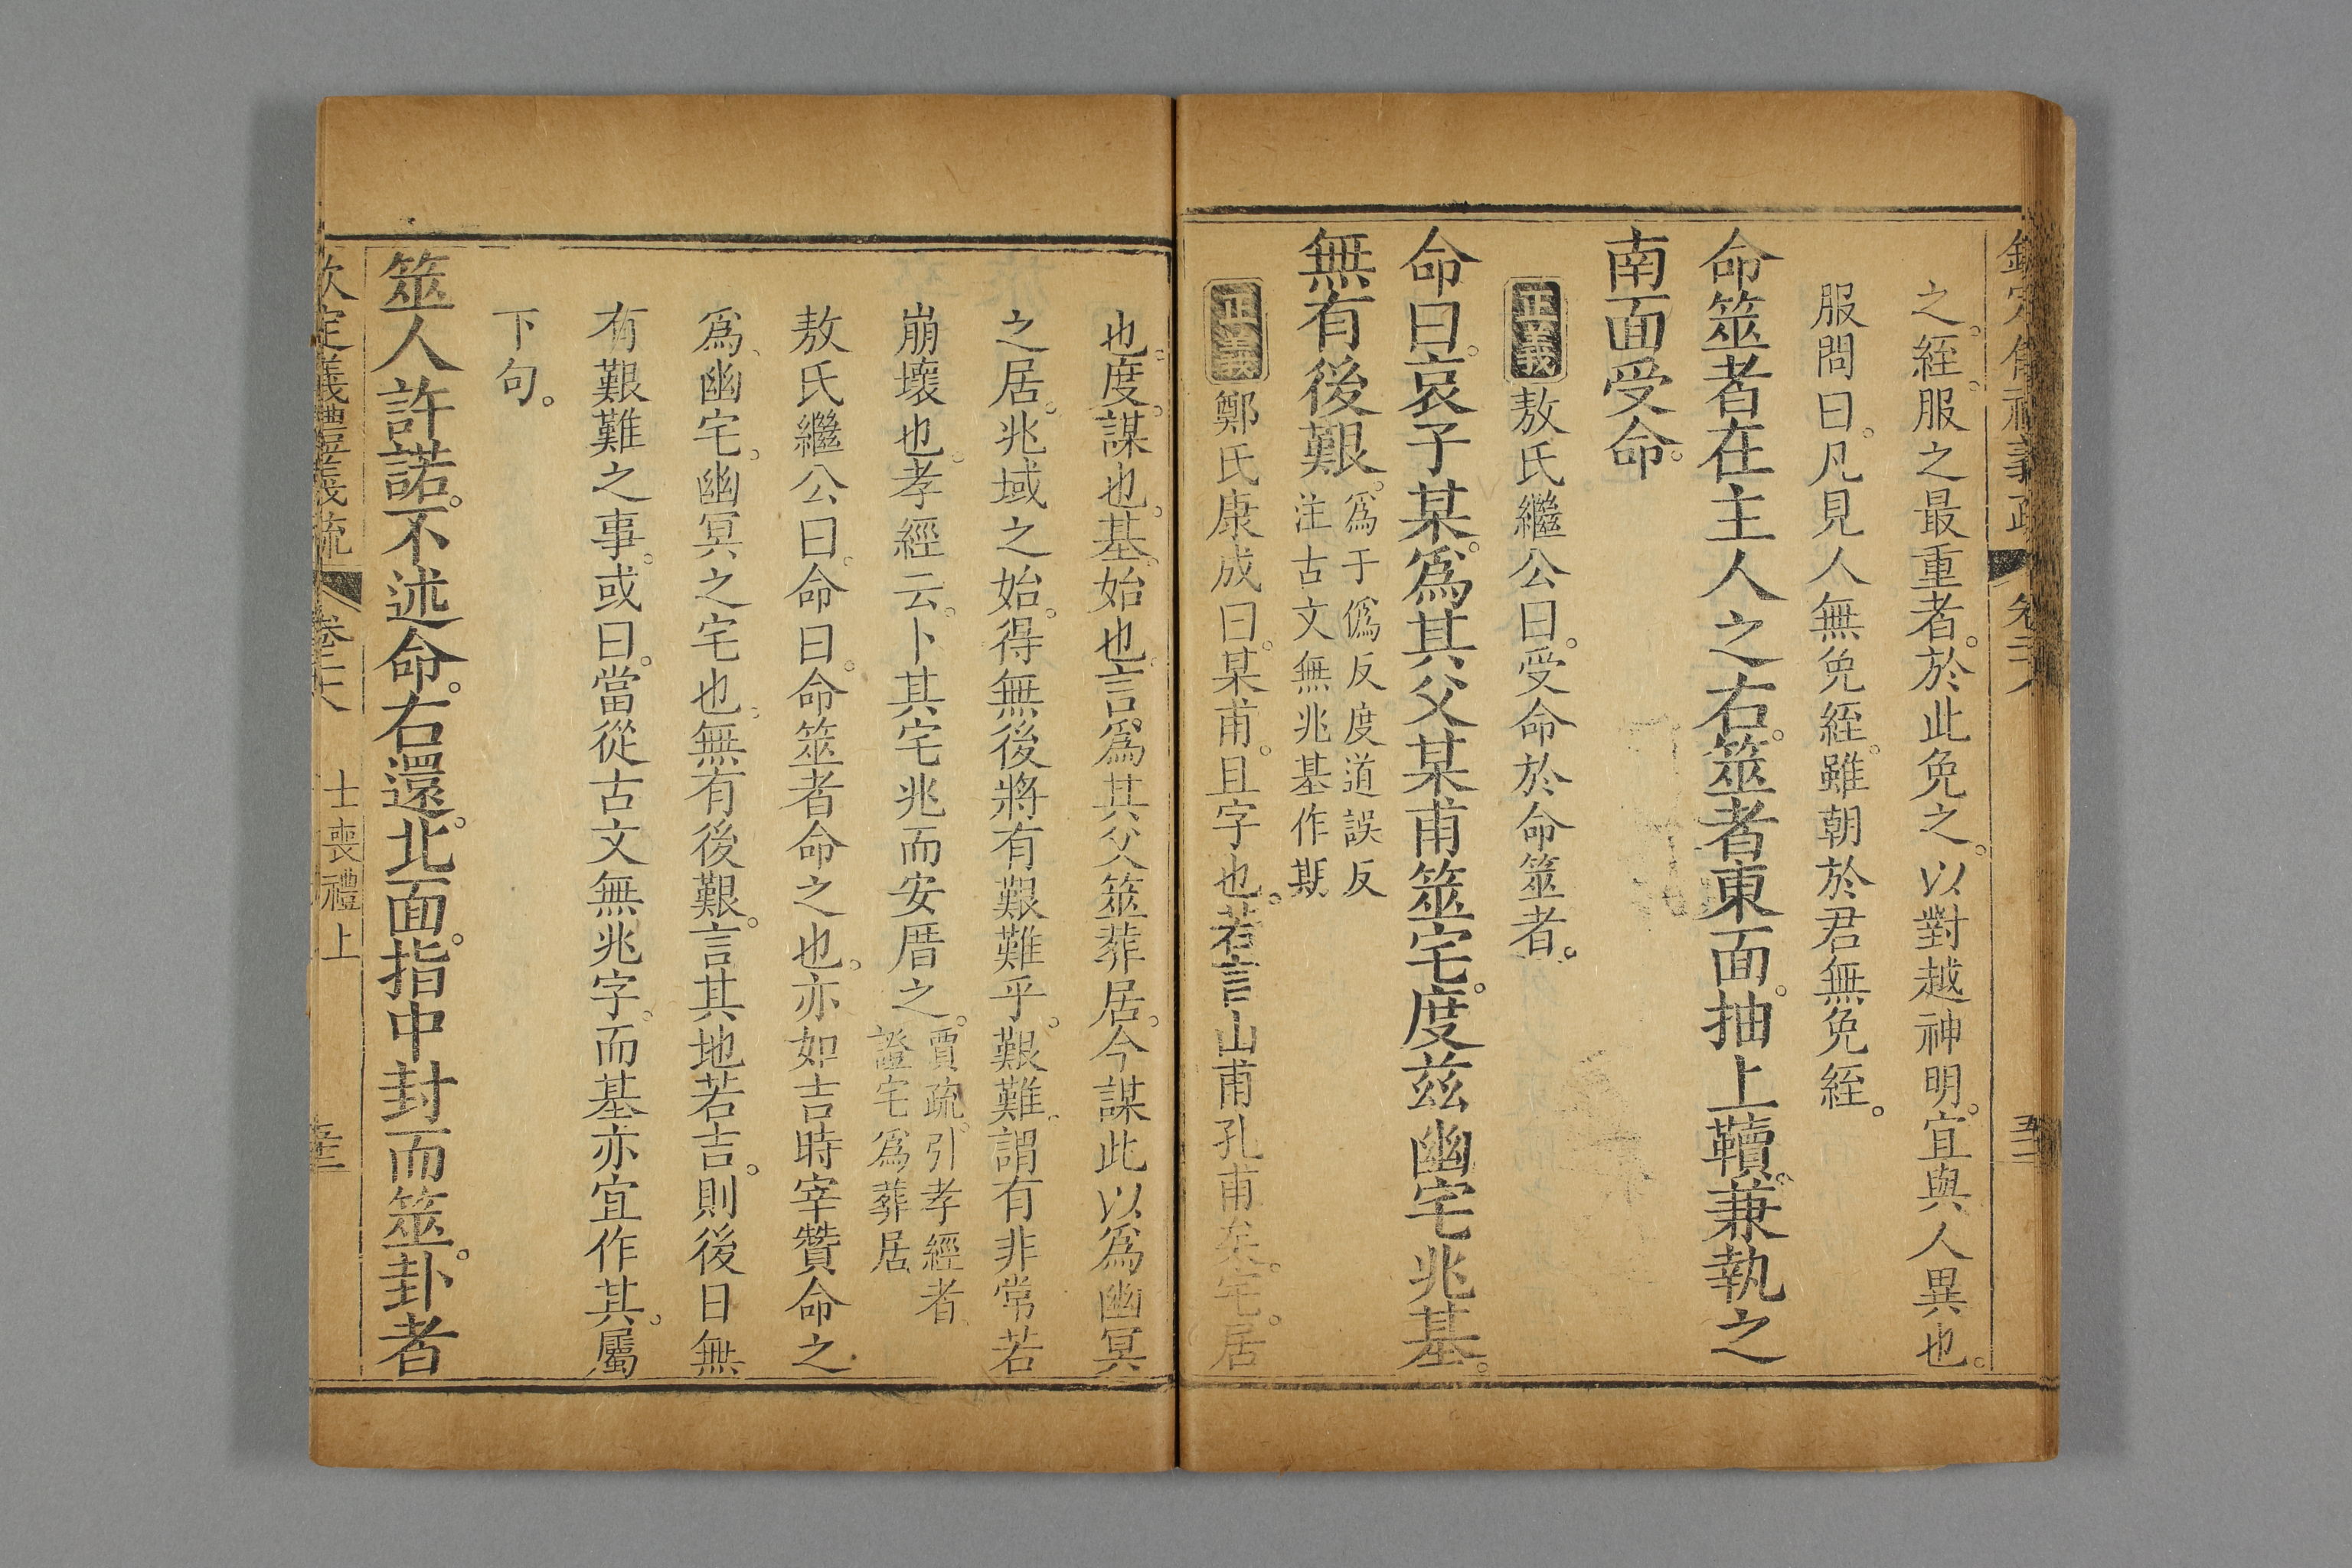 之絰。服之最重者。於此免之。以對越神明。宜與人異也。
服問曰。凡見人無免絰。雖朝於君無免絰。
命筮者在主人之右。筮者東面。抽上韇。兼執之
南面受命。
正義 敖氏繼公曰。受命於命筮者。
命曰。哀子某。爲其父某甫筮宅。度茲幽宅兆基。
無有後艱。爲于僞反度道誤反
注古文無兆基作期
正義 鄭氏康成曰。某甫。且字也。若言山甫孔甫矣。宅。居
也。度。謀也。基。始也。言爲其父筮葬居。今謀此以爲幽冥
之居。兆域之始。得無後將有艱難乎。艱難。謂有非常若
崩壞也。孝經云。卜其宅兆而安厝之。賈疏。引孝經者
證宅爲葬居
敖氏繼公曰。命曰。命筮者命之也。亦如吉時宰贊命之
爲、幽宅。幽冥之宅也。無有後艱。言其地若吉。則後日無
有艱難之事。或曰。當從古文無兆字。而基亦宜作其。屬
下句。
筮人許諾。不述命。右還。北面。指中封而筮。卦者
欽定義禮義疏 卷二十八 士喪禮上 五十三